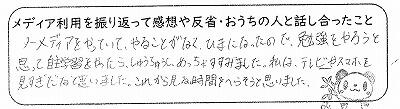 メディア利用を振り返って感想や反省・おうちの人と話し合ったこと
ノーメディアをやっていて、やることがなく、ひまになったので、勉強をやろうと
思って自主学習をやたら、しゅうちゅうし、めっちゃすすみました。私は、テレビやスマホを
見すぎだなと思いました。これから見る時間をへらそうと思いました。